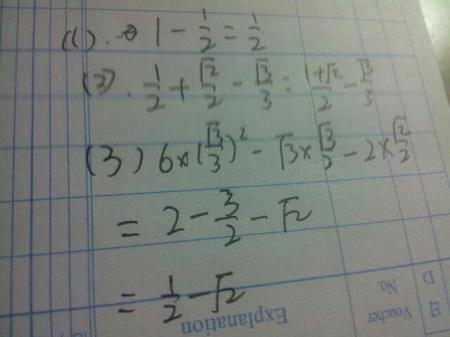 (1). 1 - 1/2 = 1/2
(2). 1/2 + √2/2 - √3/3 = (1+√2)/2 - √3/3
(3) 6×(√3/3)² - √3×√3/3 - 2×√2/2
= 2 - 3/2 - √2
= 1/2 - √2
Explanation
Voucher No.
日 D